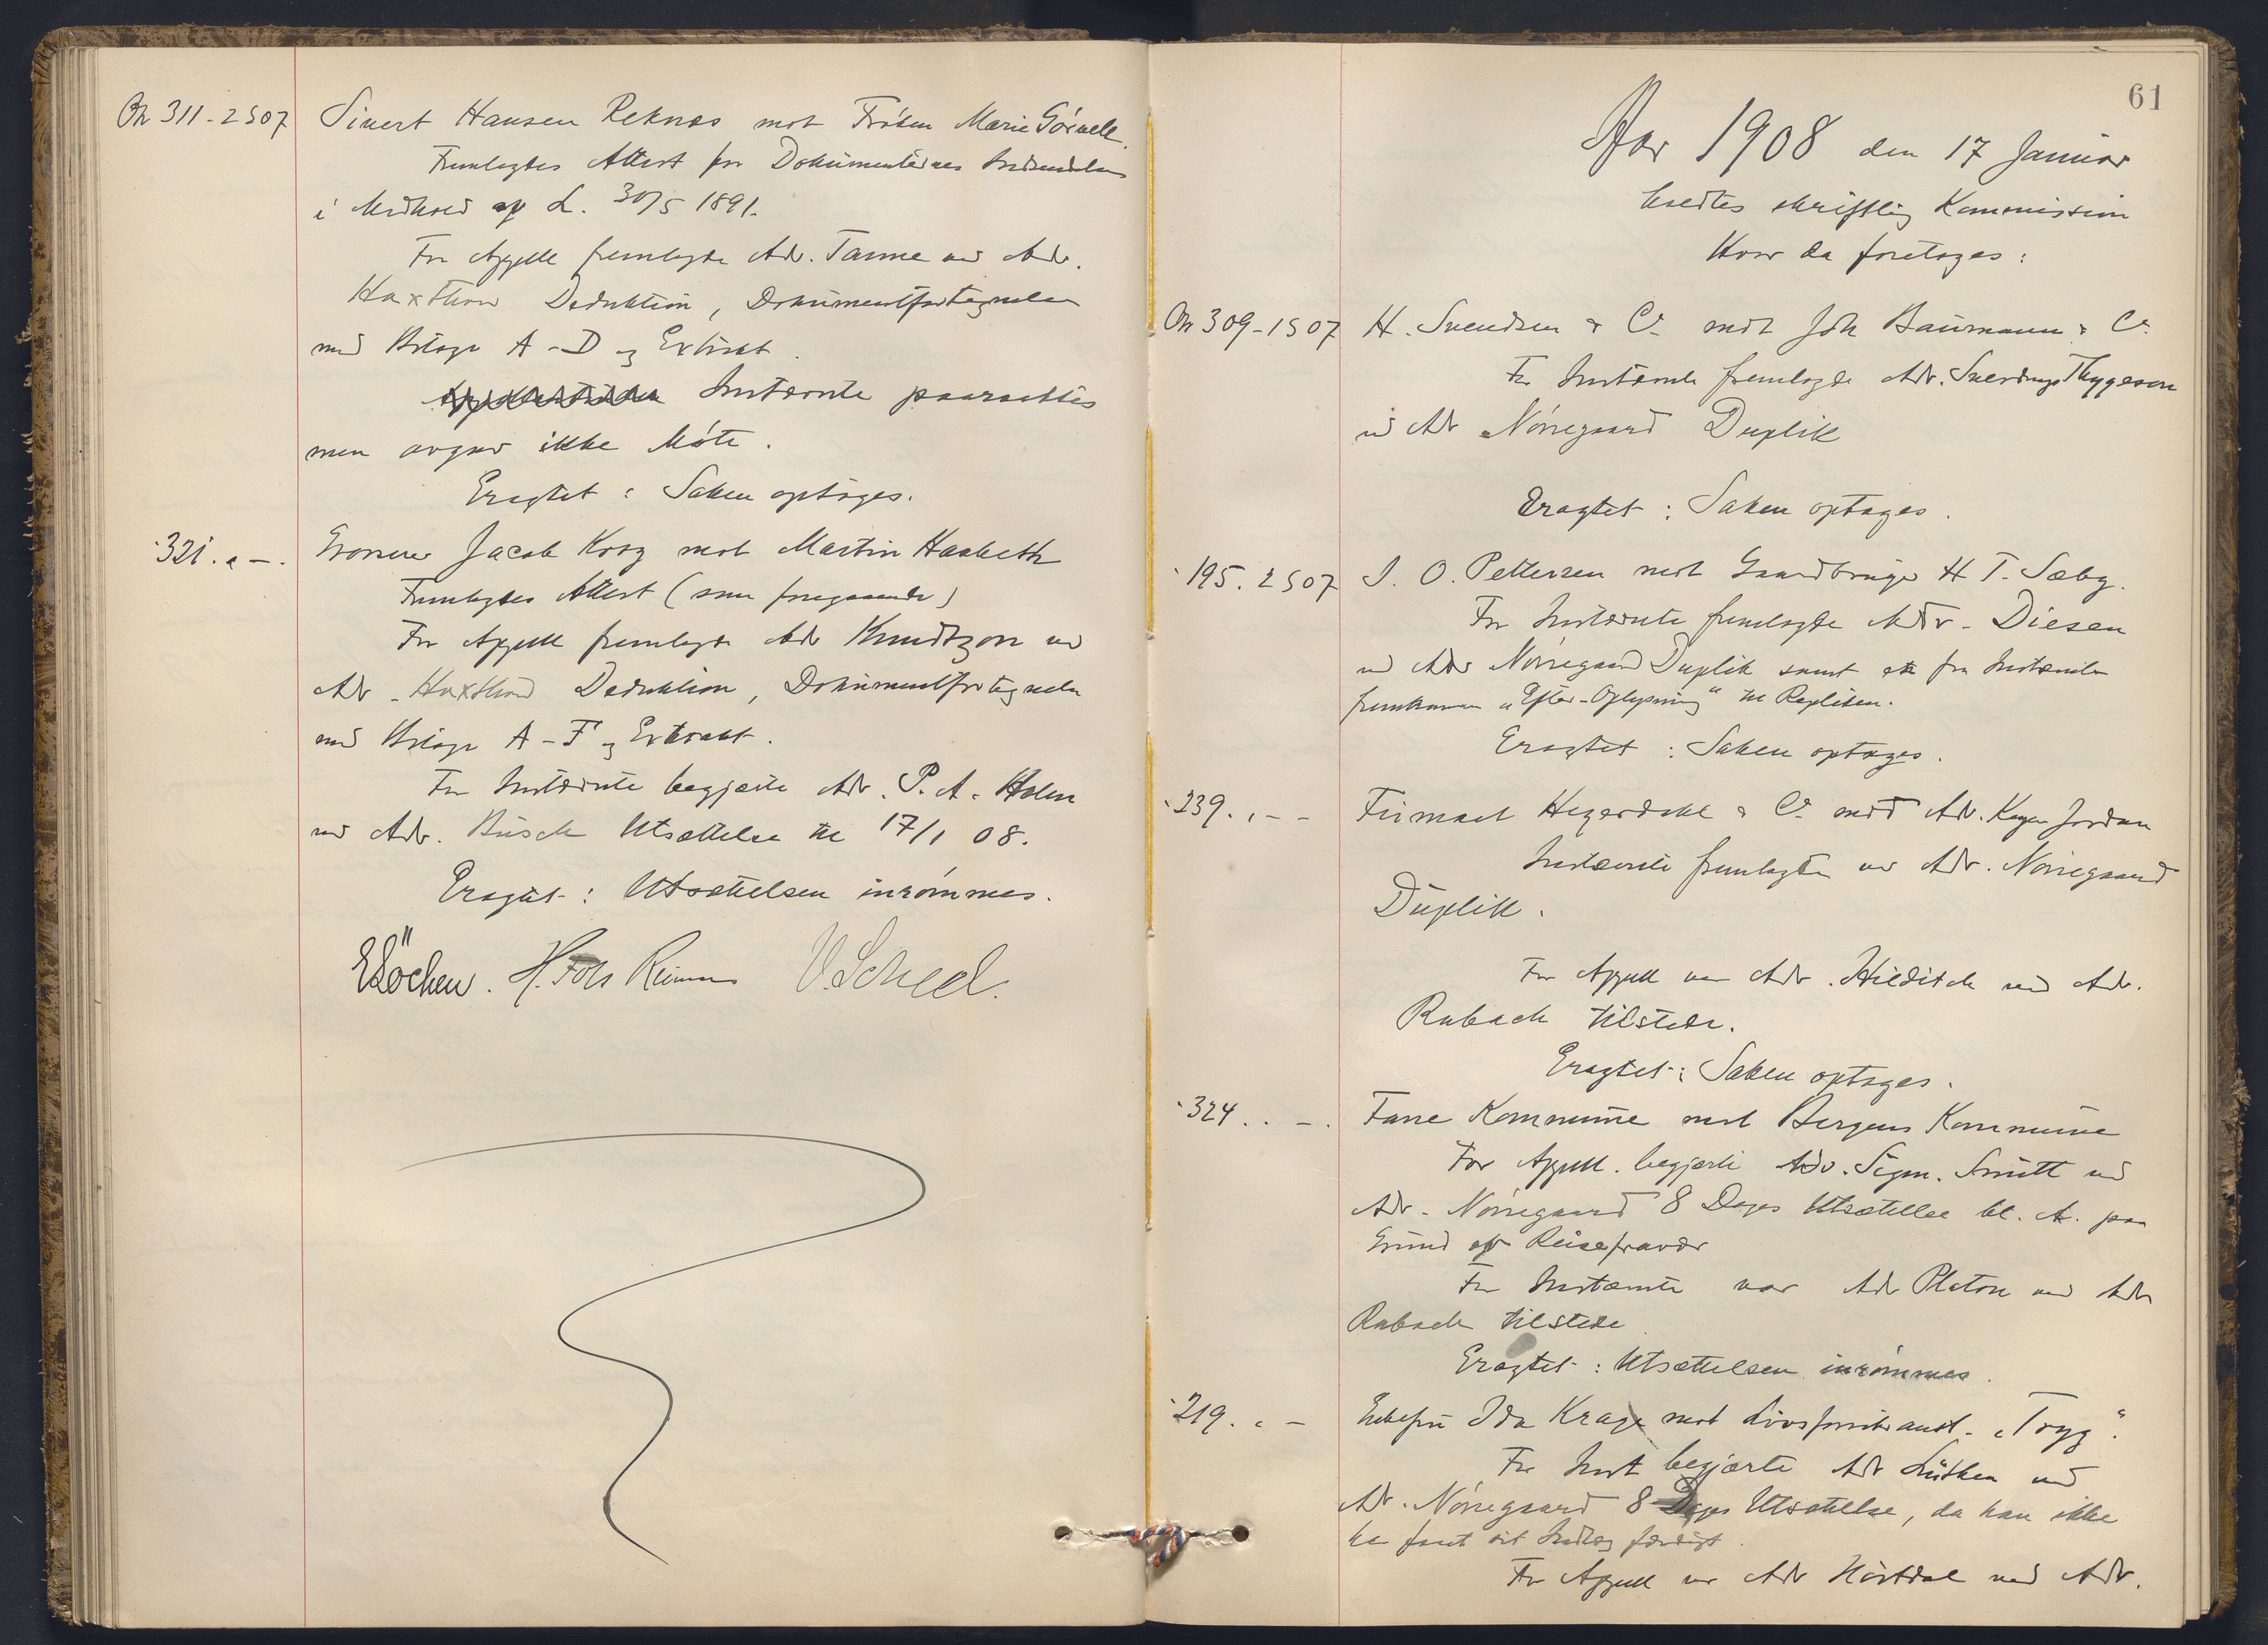 Nr 311-2 S 07 Sivert Hansen Reknes mot Fröken Marie Görvell.
Fremlagdes Attest for Dokumenternes Indsendelse
i Medhold af L. 30/5 1891.
For Appell fremlagde Adv. Tanne ved Adv.
Haxthow Deduktion, Dokumentfortegnelse
med Bilage A-D og Extrakt.
Instævnte paaraabtes
men avgav ikke Möte.
Eragtet: Saken optages.
- 321. " -. Grosserer Jacob Krog mot Martin Haabeth
Fremlagdes Attest (som foregaaende)
For Appell fremlagde Adv Knudtzon ved
Adv. Haxthow Deduktion, Dokumentfortegnelse
med Bilage A-F og Extrakt.
For Instævnte begjærte Adv. P. A. Holm
ved Adv. Busch Utsættelse til 17/1 08.
Eragtet: Utsættelsen inrömmes.
E Löchen. H. Foss Reimers V. Scheel.
61
Aar 1908 den 17 Januar
holdtes skriftlig Kommission
Hvor da foretoges:
Nr 309-1 S 07 H. Svendsen & Co mot Joh Baumann & Co.
For Instævnte fremlagde Adv. Sverdrup Thygeson
ved Adv Nörregaard Duplik
Eragtet: Saken optages.
- 195. 2 S 07 I. O. Pettersen mot Gaardbruger H T. Sæby.
For Instævnte fremlagde Adv. Diesen
ved Adv Nörregaard Duplik samt en fra Instævnte
fremkommen "Efter-Oplysning" til Repliken.
Eragtet: Saken optages.
- 239. " - - Firmaet Hegerdahl & Co mot Adv. Kayser Jordan
Instævnte fremlagde ved Adv. Nörregaard
Duplik.
For Appell var Adv. Hilditch ved Adv.
Rubach tilstede.
Eragtet: Saken optages.
- 324. . -. Fane Kommune mot Bergens Kommune
For Appell. begjærte Adv. Sigm. Smitt ved
Adv. Nörregaard 8 Dages Utsættelse bl. A. paa
Grund af Reisefravær
For Instævnte var Adv Platou ved Adv
Rubach tilstede
Eragtet: Utsættelsen inrömmes.
- 219. " - Enkefru Ida Krage mot Livsforsikranst. "Tryg".
For Inst begjærte Adv Lütken ved
Adv. Nörregaard 8 Dages Utsættelse, da han ikke
har faaet sit Indlæg færdigt.
For Appell var Adv Hörtdal ved Adv.